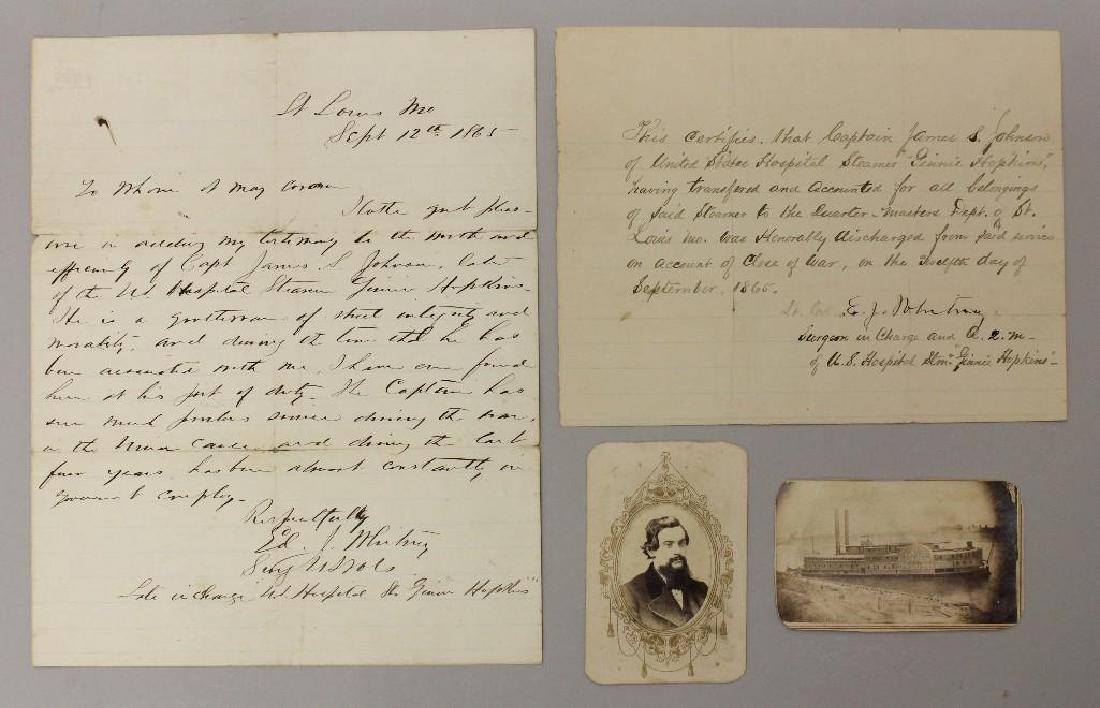 St Louis Mo
Sept 12th 1865
To Whom It may Concern
I take great pleas-
ure in adding my testimony to the worth and
efficiency of Capt James S. Johnson, late
of the U.S. Hospital Steamer Ginnie Hopkins.
He is a gentleman of strict integrity and
morality, and during the time that he has
been associated with me, I have ever found
him at his post of duty. The Captain has
seen much service during the war,
in the Union cause and during the last
four years has been almost constantly in
employ.
Respectfully
Ed. J. Whitney
Surg U.S. Vols.
Late in charge U.S. Hospital Str Ginnie Hopkins"
This certifies, that Captain James S. Johnson
of United States Hospital Steamer "Ginnie Hopkins",
having transfered and accounted for all belongings
of said Steamer to the Quarter-masters Dept. of St.
Louis Mo. was Honorably discharged from said service
on account of Close of War, on the Twelfth day of
September, 1865.
E. J. Whitney,
Surgeon in Charge and A. Q. M-
of U.S. Hospital Stmr "Ginnie Hopkins"-